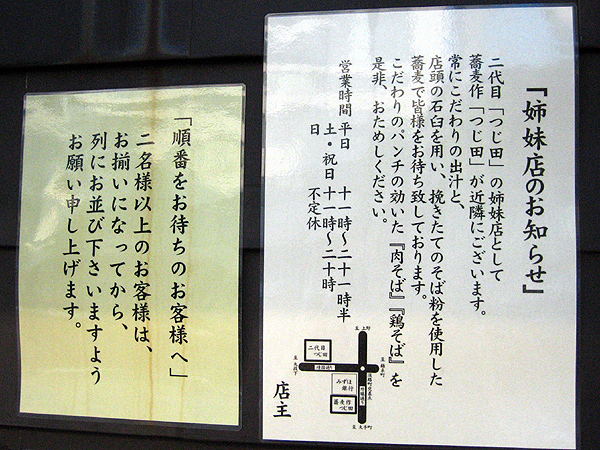 「姉妹店のお知らせ」
二代目「つじ田」の姉妹店として
蕎麦作「つじ田」が近隣にございます。
常にこだわりの出汁と、
店頭の石臼を用い、挽きたてのそば粉を使用した
蕎麦で皆様をお待ち致しております。
こだわりのパンチの効いた『肉そば』『鶏そば』を
是非、おためしください。
営業時間 平日 十一時〜二十一時半
土・祝日 十一時〜二十時
日 不定休
至 上野
二代目
つじ田
至 九段下
靖国通り
みずほ
銀行
蕎麦作
つじ田
至 大手町
店主
「順番をお待ちのお客様へ」
二名様以上のお客様は、
お揃いになってから、
列にお並び下さいますよう
お願い申し上げます。